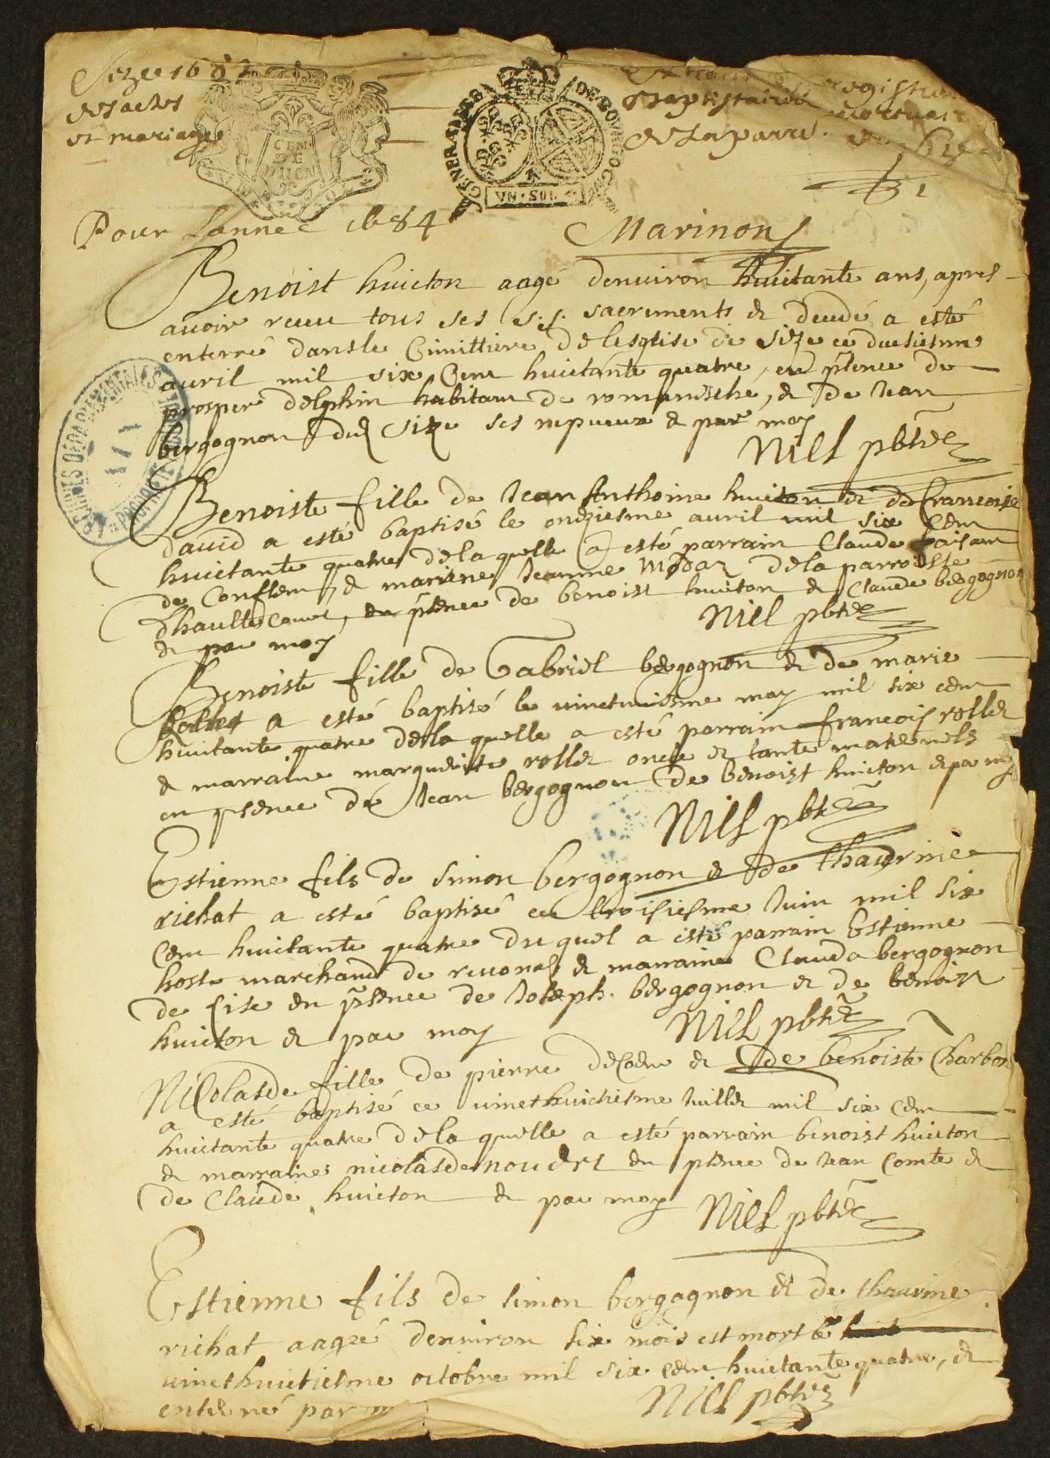 Size 1682
et mariages
Baptistaire
de la parro
GENERAL DES
DE BOURGOG
UN · SOL
Pour Lannee 1684
Marinon
Benoist huicton aagé denuiron huictante ans, apres
auoir receu tous ses sacrements de a esté
enterré dans le Cimittiere de lesglise de Size ce duesiesme
auril mil six Cent huictante quatre, en pñce de
prosper delphin habitant de romanesche, & de Jean
bergognon dud Size ses nepueux & par moy
Niel pbtre
Benoiste fille de Jean Anthoine huicton et de francoise
dauid a esté baptisé le onziesme auril mil six cent
huictante quatre de laquelle a esté parrain Claude
de Conflens, & marrene Jeanne de la parroisse
dhaultecour, en pñce de benoist huicton & Claude bergognon
& par moy
Niel pbtre
Benoiste fille de Gabriel bergognon et de marie
rollet a esté baptisé le vinctuniesme may mil six cent
huictante quatre de la quelle a esté parrain francois rollet
& marraine marguerite rollet oncle et tante maternels
en presence de Jean bergognon de benoist huicton & par moy
Niel pbtre
Estienne fils de Simon bergognon & de thaurine
richat a esté baptisé ce troisiesme Juin mil six
cent huictante quatre du quel a esté parrain Estienne
hoste marchand de reuonas & marraine Clauda bergognon
de Size en pñce de Joseph bergognon et de benoist
huicton & par moy
Niel pbtre
Nicolasde fille de pierre et de benoiste Charbon
a esté baptisé ce vincthuictiesme Juillet mil six cent
huictante quatre de la quelle a esté parrain benoist huicton
& marraines nicolasde en pñce de Jean Comte &
de Claude huicton & par moy
Niel pbtre
Estienne fils de Simon bergognon & de thaurine
richat aagé denuiron six mois est mort le
vincthuictiesme octobre mil six cent huictante quatre, &
enterré par m
Niel pbtre